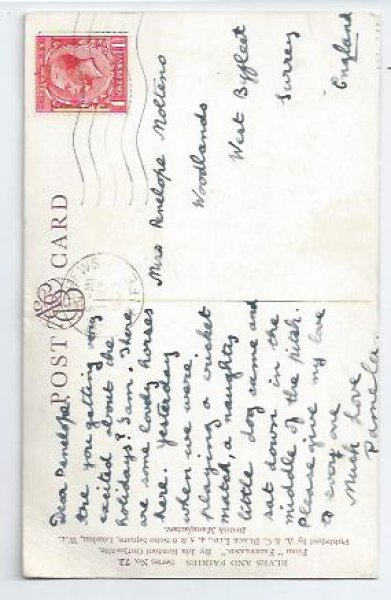 POST CARD
Dear Penelope,
Are you getting very
excited about the
holidays? I am. There
are some lovely horses
here. Yesterday
when we were
playing a cricket
match, a naughty
little dog came and
sat down in the
middle of the pitch.
Please give my love
to every one
Much love
Pamela.
Miss Penelope Molteno
Woodlands
West Byfleet
Surrey
England
ELVES AND FAIRIES Series No. 72
From "FAIRYLAND." By Ida Rentoul Outhwaite.
Published by A. & C. BLACK LTD., 4, 5 & 6 Soho Square, London, W.1.
British Manufacture.